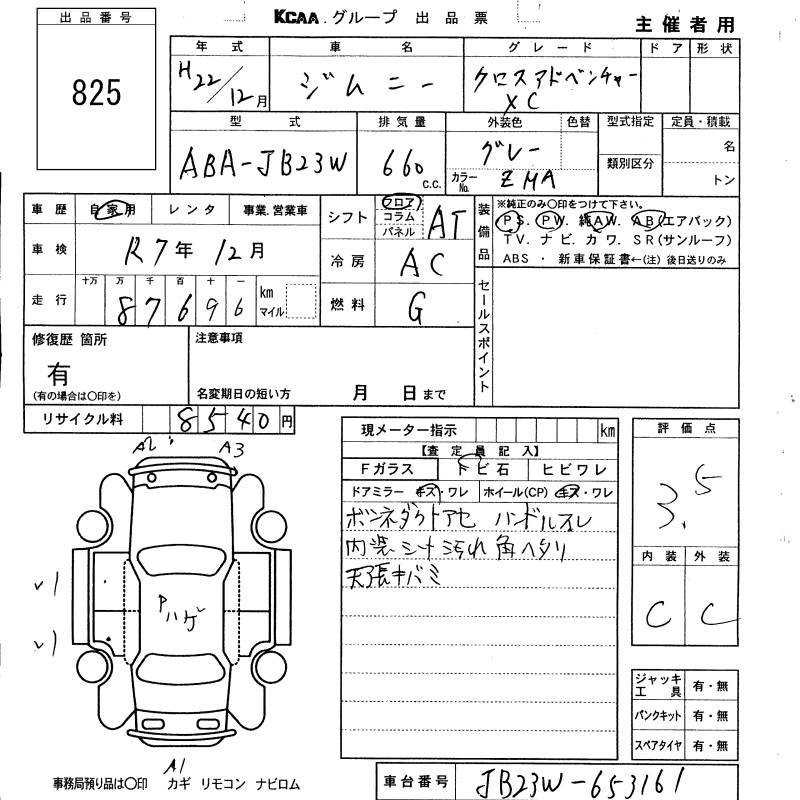 KCAA グループ 出品票
主催者用
出品番号
825
年式 車名 グレード ドア 形状
H22/12月 ジムニー クロスアドベンチャー
XC
型式 排気量 外装色 色替 型式指定 定員・積載
ABA-JB23W 660 c.c. グレー 名
カラーNo. ZMA 類別区分 トン
車歴 自家用 レンタ 事業.営業車
シフト フロア コラム パネル AT
装備品 ※純正のみ〇印をつけて下さい。
PS. PW. 純AW. AB(エアバック)
TV. ナビ. カワ. SR(サンルーフ)
ABS ・ 新車保証書←(注) 後日送りのみ
車検 R7年 12月
冷房 AC
走行 十万 万 千 百 十 一
87696 km マイル
燃料 G
セールスポイント
修復歴 箇所
有
(有の場合は〇印を)
注意事項
名変期日の短い方 月 日まで
リサイクル料 8540円
現メーター指示 km
【査定員記入】
Fガラス トビ石 ヒビワレ
ドアミラー キズ・ワレ ホイール(CP) キズ・ワレ
ボンネダクトアセ ハンドルスレ
内装シート汚れ 角ヘタリ
天張キバミ
評価点
3.5
内装 外装
C C
A2 A3
Pハゲ
√1
√1
A1
ジャッキ工具 有・無
パンクキット 有・無
スペアタイヤ 有・無
事務局預り品は〇印 カギ リモコン ナビロム
車台番号 JB23W-653161